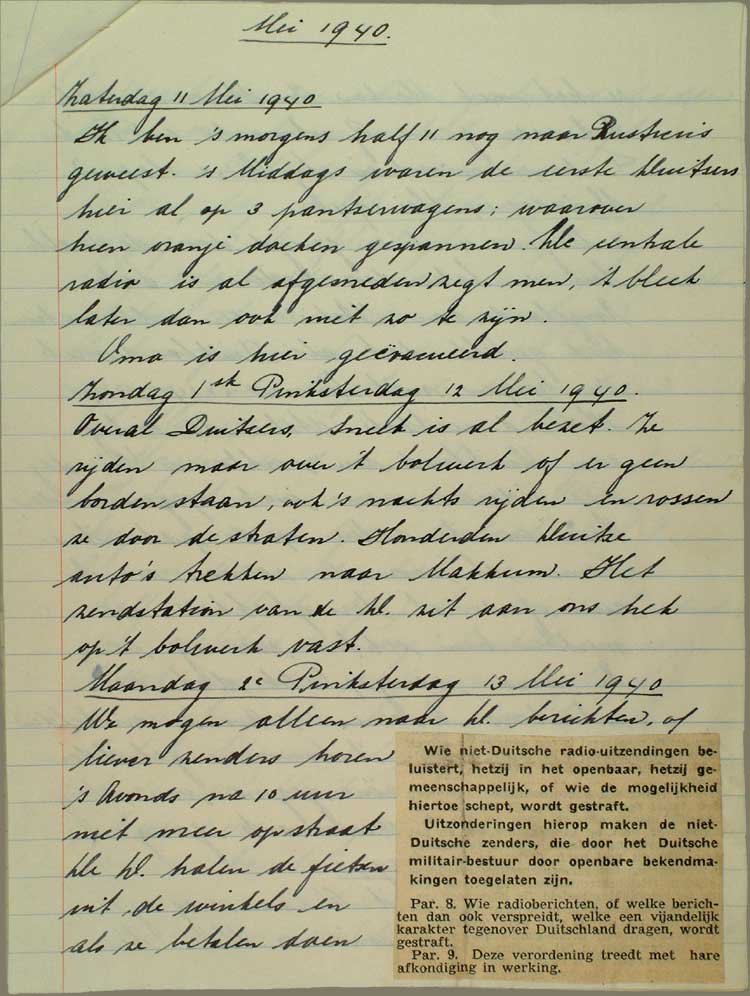 Mei 1940.
Zaterdag 11 Mei 1940
Ik ben 's morgens half 11 nog naar
geweest. 's Middags waren de eerste Duitsers
hier al op 3 pantserwagens; waarover
heen oranje doeken gespannen. De centrale
radio is al afgesneden zegt men, 't bleek
later dan ook niet zo te zijn.
Oma is hier geëvacueerd.
Zondag 1ste Pinksterdag 12 Mei 1940.
Overal Duitsers, Sneek is al bezet. Ze
rijden maar over 't bolwerk of er geen
borden staan, ook 's nachts rijden en rossen
ze door de straten. Honderden Duitse
auto's trekken naar Makkum. Het
zendstation van de D. zit aan ons hek
op 't bolwerk vast.
Maandag 2e Pinksterdag 13 Mei 1940
We mogen alleen naar D. berichten, of
liever zenders horen
's Avonds na 10 uur
niet meer op straat
De D. halen de fietsen
uit de winkels en
als ze betalen doen
Wie niet-Duitsche radio-uitzendingen be-
luistert, hetzij in het openbaar, hetzij ge-
meenschappelijk, of wie de mogelijkheid
hiertoe schept, wordt gestraft.
Uitzonderingen hierop maken de niet-
Duitsche zenders, die door het Duitsche
militair-bestuur door openbare bekendma-
kingen toegelaten zijn.
Par. 8. Wie radioberichten, of welke berich-
ten dan ook verspreidt, welke een vijandelijk
karakter tegenover Duitschland dragen, wordt
gestraft.
Par. 9. Deze verordening treedt met hare
afkondiging in werking.